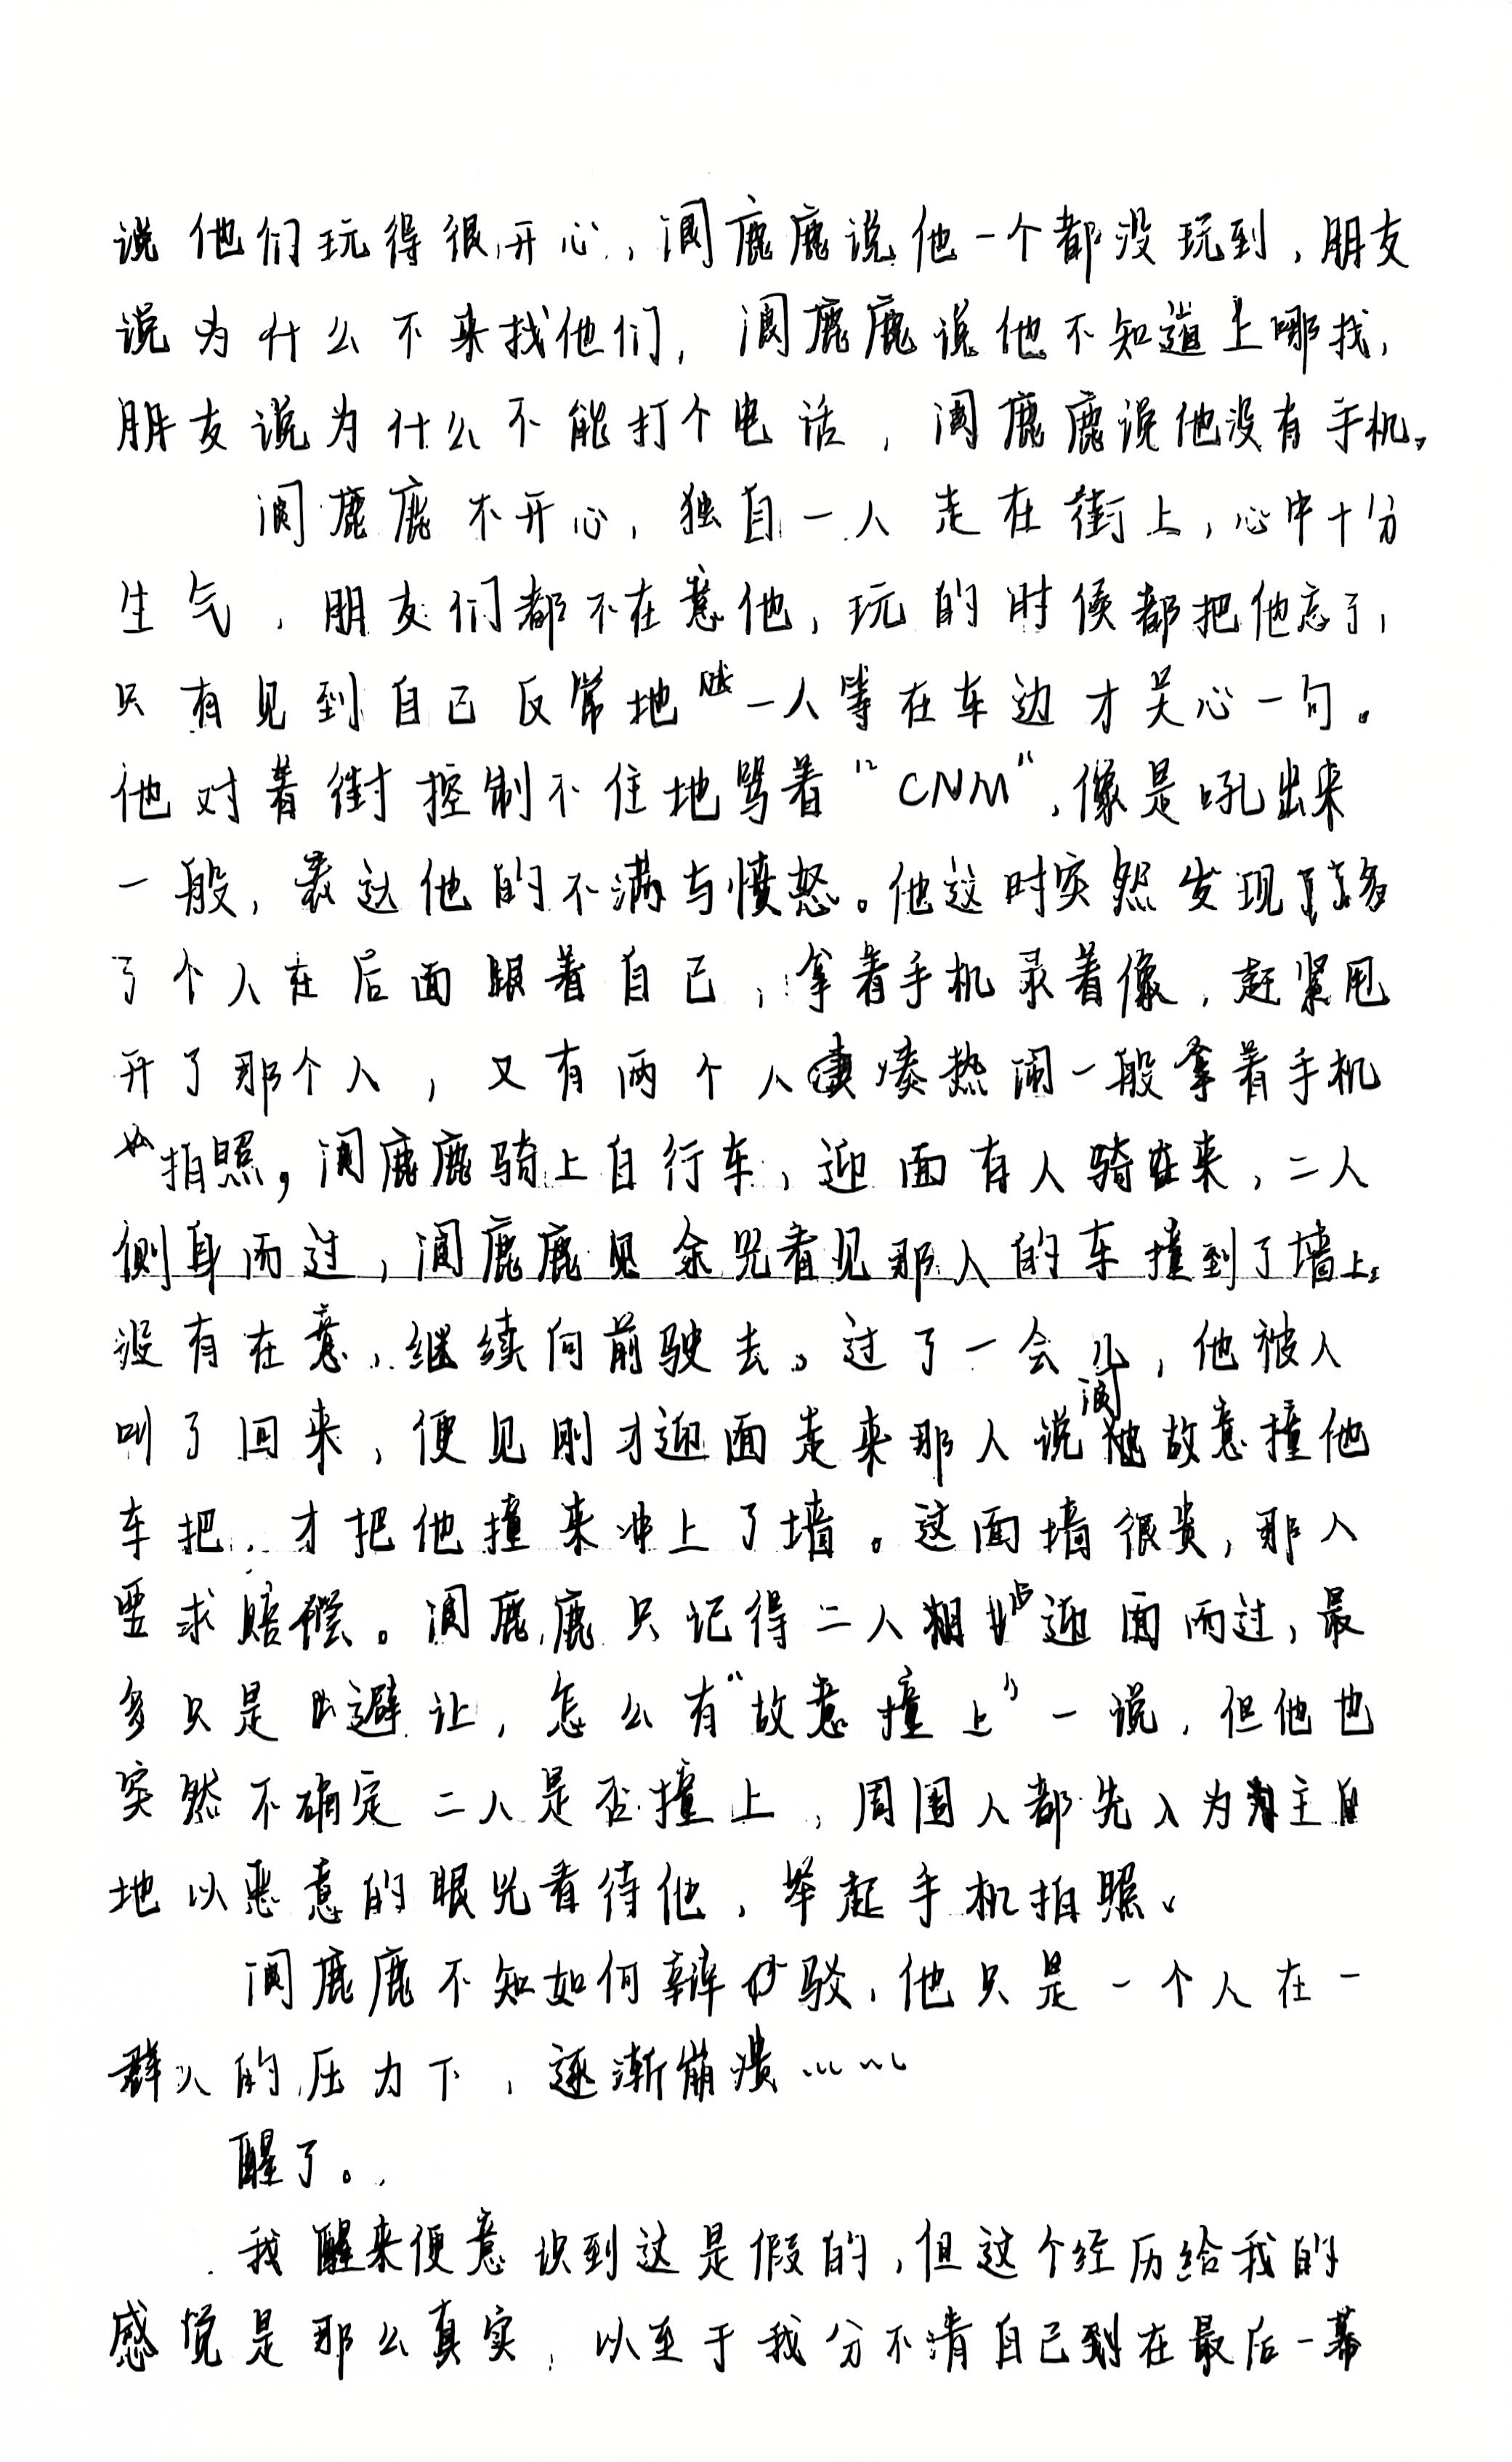 说他们玩得很开心，阔鹿鹿说他一个都没玩到，朋友
说为什么不来找他们，阔鹿鹿说他不知道上哪找，
朋友说为什么不能打个电话，阔鹿鹿说他没有手机。
阔鹿鹿不开心，独自一人走在街上，心中十分
生气，朋友们都不在意他，玩的时候都把他忘了，
只有见到自己反常地一人等在车边才关心一句。
他对着街控制不住地骂着“CNM”，像是吼出来
一般，表达他的不满与愤怒。他这时突然发现了多
了个人在后面跟着自己，拿着手机录着像，赶紧甩
开了那个人，又有两个人凑热闹一般拿着手机
拍照，阔鹿鹿骑上自行车，迎面有人骑来，二人
侧身而过，阔鹿鹿见余光看见那人的车撞到了墙上。
没有在意，继续向前驶去。过了一会儿，他被人
叫了回来，便见刚才迎面走来那人说阔故意撞他
车把，才把他撞来冲上了墙。这面墙很贵，那人
要求赔偿。阔鹿鹿只记得二人迎面而过，最
多只是避让，怎么有“故意撞上”一说，但他也
突然不确定二人是否撞上，周围人都先入为主
地以恶意的眼光看待他，举起手机拍照。
阔鹿鹿不知如何辩驳，他只是一个人在一
群人的压力下，逐渐崩溃……
醒了。
我醒来便意识到这是假的，但这个经历给我的
感觉是那么真实，以至于我分不清自己到在最后一幕